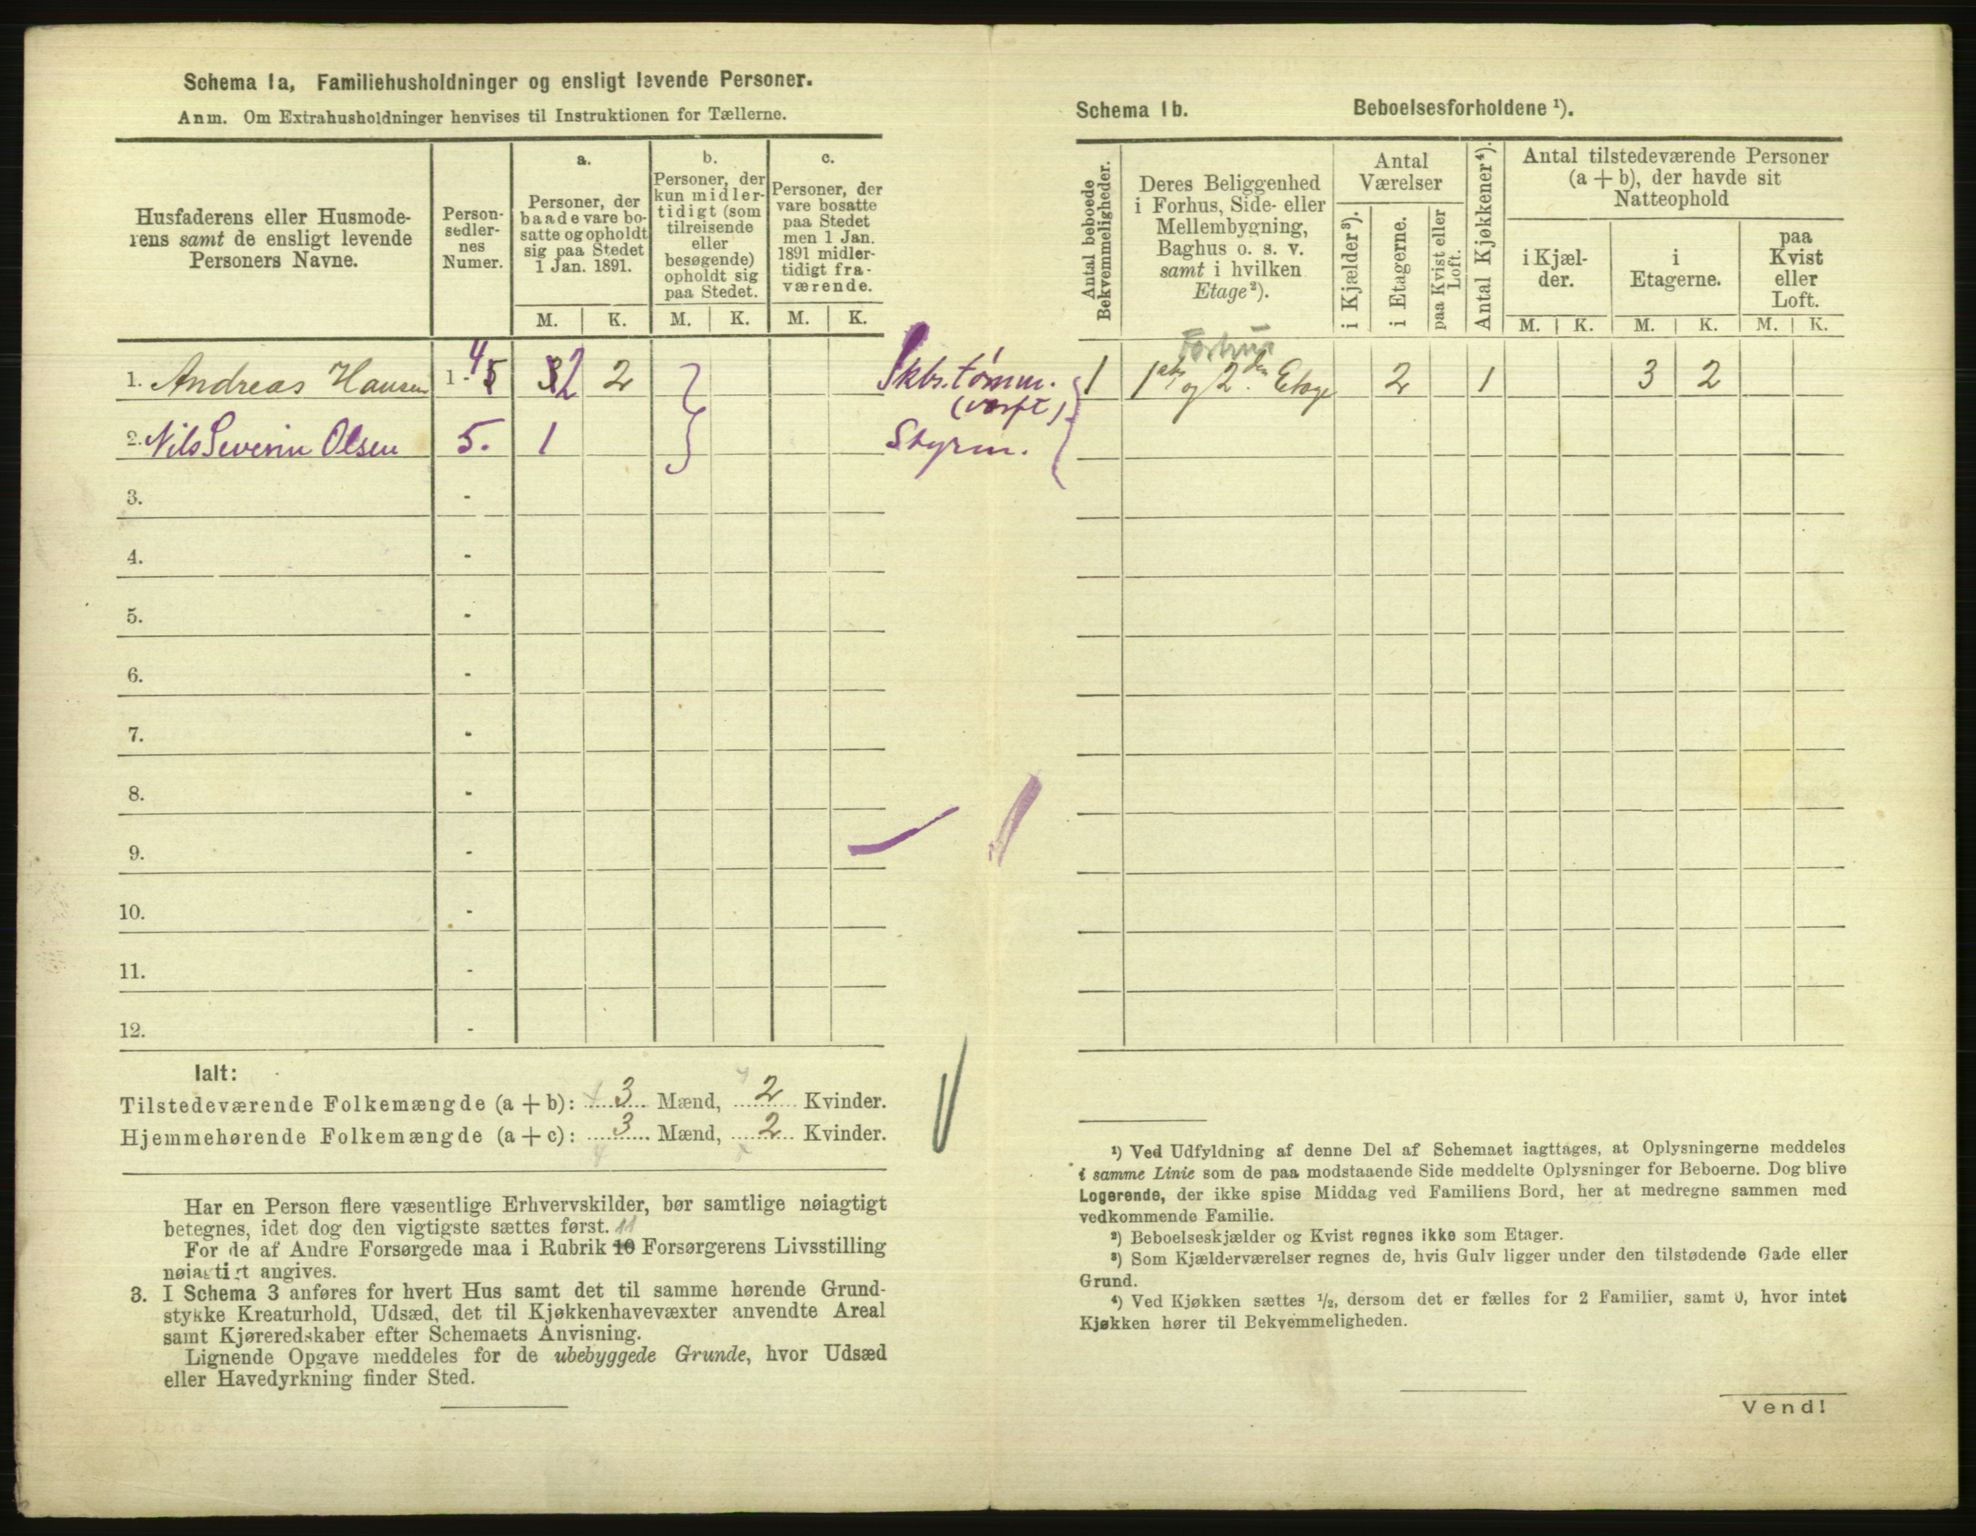 Schema 1a, Familiehusholdninger og ensligt levende Personer.
Anm. Om Extrahusholdninger henvises til Instruktionen for Tællerne.
Husfaderens eller Husmode-
rens samt de ensligt levende
Personers Navne.
Person-
sedler-
nes
Numer.
a.
Personer, der
baade vare bo-
satte og opholdt
sig paa Stedet
1 Jan. 1891.
b.
Personer, der
kun midler-
tidigt (som
tilreisende
eller
besøgende)
opholdt sig
paa Stedet.
c.
Personer, der
vare bosatte
paa Stedet
men 1 Jan.
1891 midler-
tidigt fra-
værende.
M. K. M. K. M. K.
1. Andreas Hansen 1 - 5 4 3 2 2 Skbs.tømm.
(værft)
2. Nils Severin Olsen 5. 1 Styrm.
3. -
4. -
5. -
6. -
7. -
8. -
9. -
10. -
11. -
12. -
Ialt:
Tilstedeværende Folkemængde (a + b): 3 Mænd, 2 Kvinder.
Hjemmehørende Folkemængde (a + c): 3 Mænd, 2 Kvinder.
Har en Person flere væsentlige Erhvervskilder, bør samtlige nøiagtigt
betegnes, idet dog den vigtigste sættes først. 11
For de af Andre Forsørgede maa i Rubrik 10 Forsørgerens Livsstilling
nøiagtigt angives.
3. I Schema 3 anføres for hvert Hus samt det til samme hørende Grund-
stykke Kreaturhold, Udsæd, det til Kjøkkenhavevæxter anvendte Areal
samt Kjøreredskaber efter Schemaets Anvisning.
Lignende Opgave meddeles for de ubebyggede Grunde, hvor Udsæd
eller Havedyrkning finder Sted.
Schema 1b. Beboelsesforholdene ¹).
Antal beboede
Bekvemmeligheder.
Deres Beliggenhed
i Forhus, Side- eller
Mellembygning,
Baghus o. s. v.
samt i hvilken
Etage²).
Antal
Værelser
i Kjælder³).
i Etagerne.
paa Kvist eller
Loft.
Antal Kjøkkener⁴).
Antal tilstedeværende Personer
(a + b), der havde sit
Natteophold
i Kjæl-
der.
i
Etagerne.
paa
Kvist
eller
Loft.
M. K. M. K. M. K.
Forhus
1 1ste og 2den Etage 2 1 3 2
¹) Ved Udfyldning af denne Del af Schemaet iagttages, at Oplysningerne meddeles
i samme Linie som de paa modstaaende Side meddelte Oplysninger for Beboerne. Dog blive
Logerende, der ikke spise Middag ved Familiens Bord, her at medregne sammen med
vedkommende Familie.
²) Beboelseskjælder og Kvist regnes ikke som Etager.
³) Som Kjælderværelser regnes de, hvis Gulv ligger under den tilstødende Gade eller
Grund.
⁴) Ved Kjøkken sættes ½, dersom det er fælles for 2 Familier, samt 0, hvor intet
Kjøkken hører til Bekvemmeligheden.
Vend!